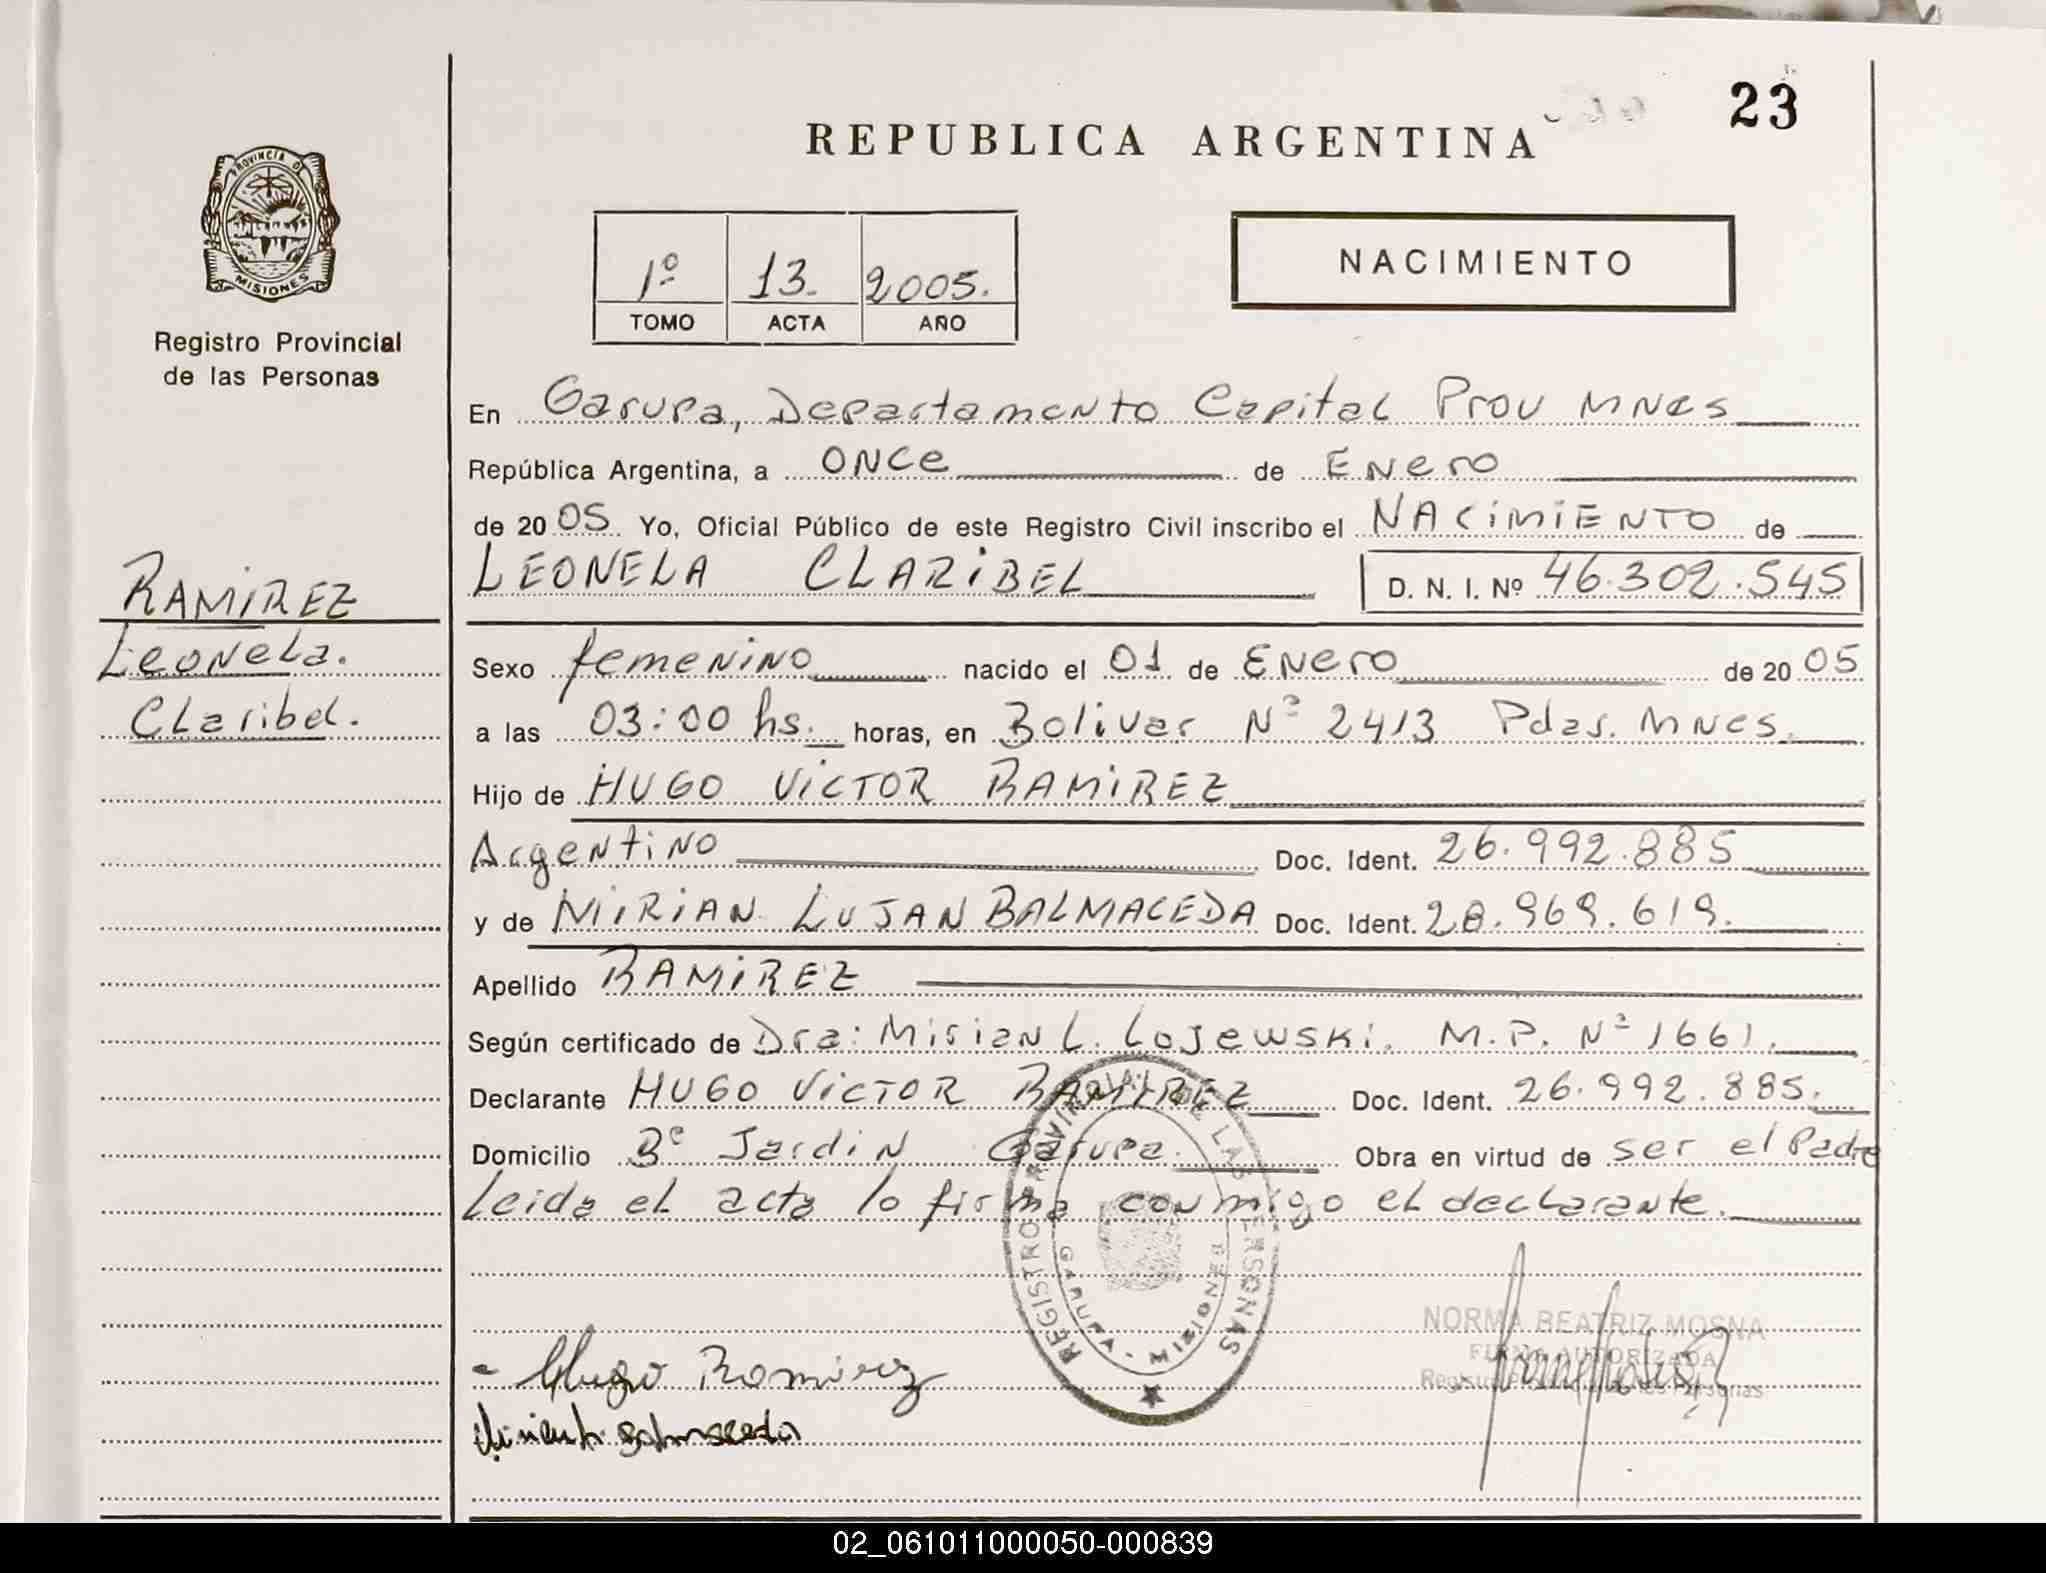 23
REPUBLICA ARGENTINA
PROVINCIA D
MISIONES
Registro Provincial
de las Personas
1º 13. 2005.
TOMO ACTA AÑO
NACIMIENTO
En Garupa, Departamento Capital Prov Mnes
República Argentina, a once de Enero
de 2005. Yo, Oficial Público de este Registro Civil inscribo el NACIMIENTO de
LEONELA CLARIBEL D. N. I. Nº 46.302.545
RAMIREZ
Leonela.
Claribel.
Sexo femenino nacido el 01 de Enero de 2005
a las 03:00 hs. horas, en Bolivar Nº 2413 Pdas. Mnes.
Hijo de HUGO VICTOR RAMIREZ
Argentino Doc. Ident. 26.992.885
y de MIRIAN LUJAN BALMACEDA Doc. Ident. 28.969.619.
Apellido RAMIREZ
Según certificado de Dra: Mirian L. Lojewski. M.P. Nº 1661.
Declarante HUGO VICTOR RAMIREZ Doc. Ident. 26.992.885.
Domicilio Bº Jardin Garupa. Obra en virtud de ser el Padre
Leida el acta lo firma conmigo el declarante.
REGISTRO PROVINCIAL DE LAS PERSONAS
GARUPA - MISIONES
NORMA BEATRIZ MOSNA
FIRMA AUTORIZADA
Registro Provincial de las Personas
- Hugo Ramirez
Balmaceda
02_061011000050-000839